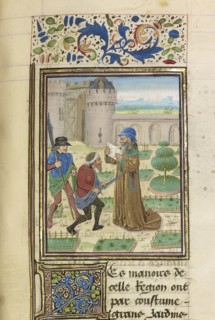 Es manoirs de
celle Region ont
par coustume
grans Jardins